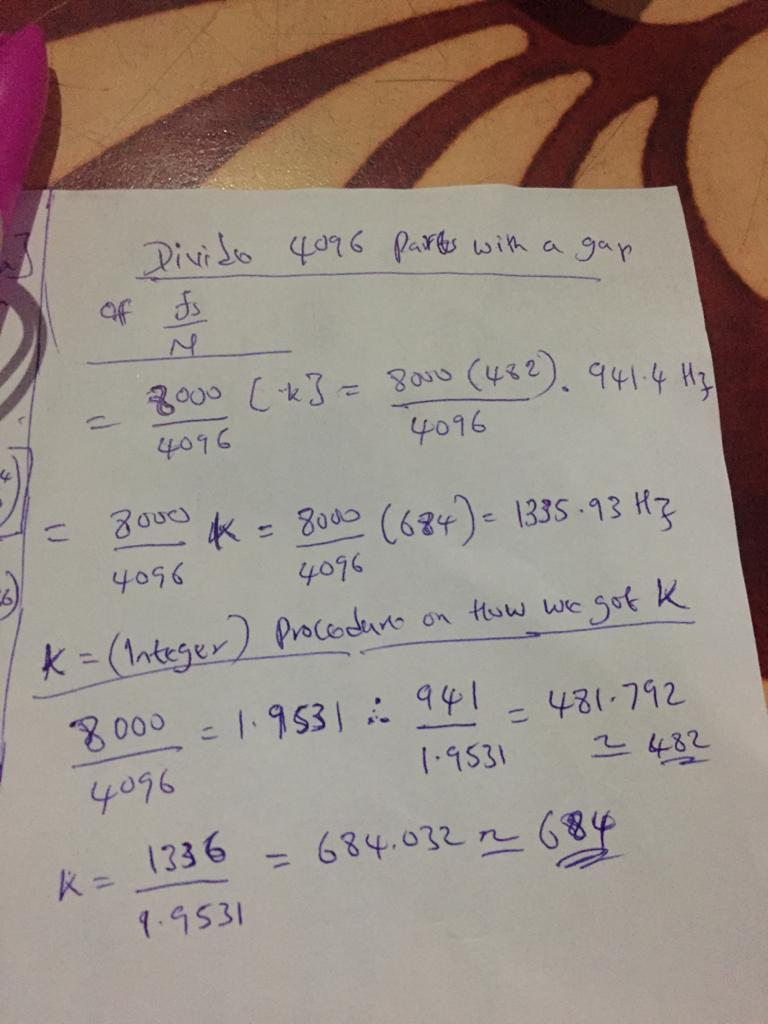 Divide 4096 Parts with a gap
of fs/M
= 8000/4096 [k] = 8000 (482)/4096 . 941.4 Hz
= 8000/4096 k = 8000/4096 (684) = 1335.93 Hz
K = (Integer) Procedure on How we got K
8000/4096 = 1.9531 ∴ 941/1.9531 = 481.792
≃ 482
K = 1336/1.9531 = 684.032 ≃ 684